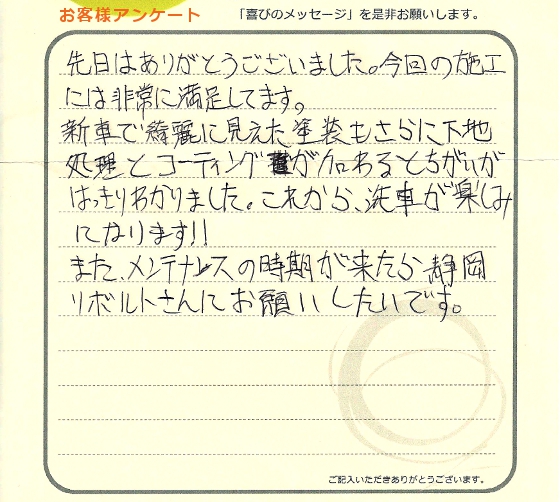 お客様アンケート 「喜びのメッセージ」を是非お願いします。
先日はありがとうございました。今回の施工
には非常に満足してます。
新車で綺麗に見えた塗装もさらに下地
処理とコーティングが加わるとちがいが
はっきりわかりました。これから、洗車が楽しみ
になります!!
また、メンテナンスの時期が来たら静岡
リボルトさんにお願いしたいです。
ご記入いただきありがとうございます。